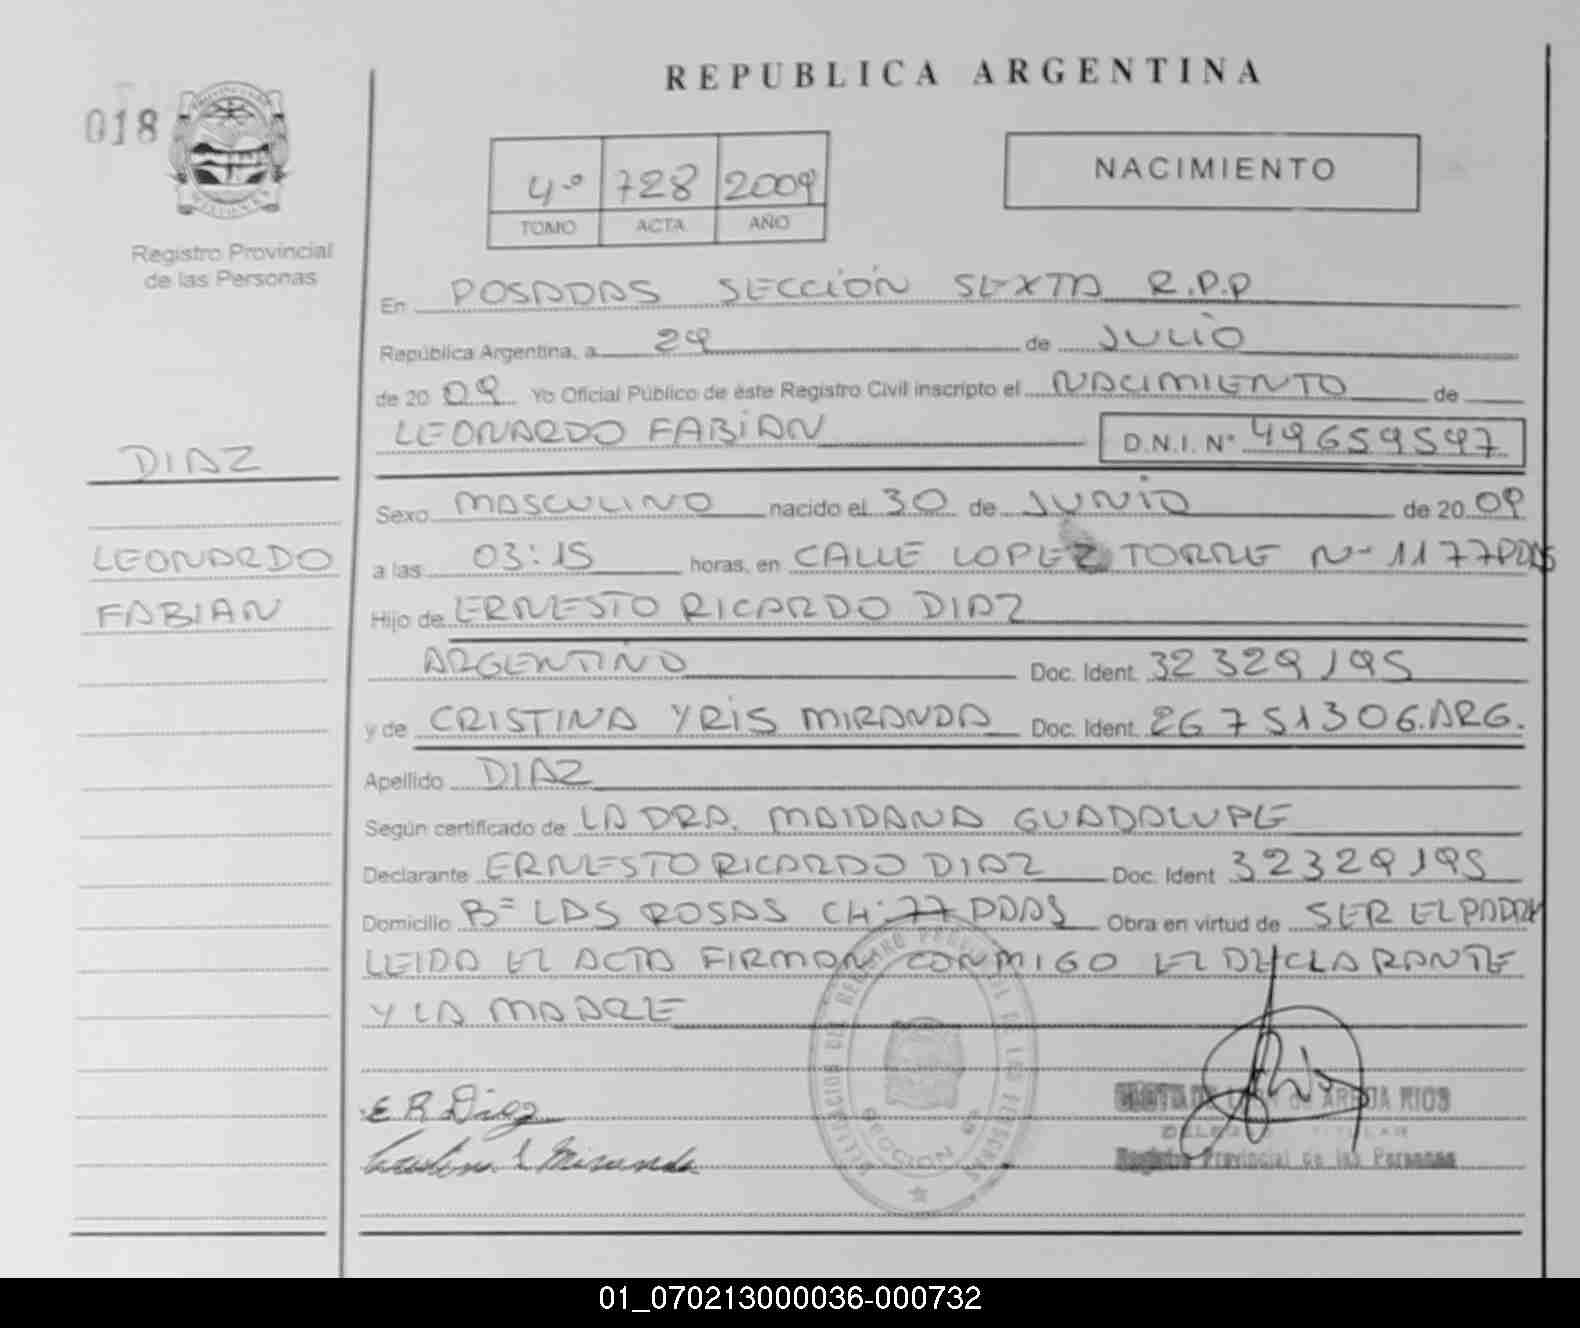 REPUBLICA ARGENTINA
018
PROVINCIA DE
MISIONES
Registro Provincial
de las Personas
4.º 728 2009
TOMO ACTA AÑO
NACIMIENTO
En POSADAS SECCIÓN SEXTA R.P.P
República Argentina, a 29 de JULIO
de 20 09 Yo Oficial Público de éste Registro Civil inscripto el NACIMIENTO de
LEONARDO FABIAN D.N.I. Nº 49659597
DIAZ
LEONARDO
FABIAN
Sexo MASCULINO nacido el 30 de JUNIO de 20 09
a las 03:15 horas, en CALLE LOPEZ TORRE Nº 1177 PDAS
Hijo de ERNESTO RICARDO DIAZ
ARGENTINO Doc. Ident. 32329195
y de CRISTINA YRIS MIRANDA Doc. Ident. 26751306.ARG.
Apellido DIAZ
Según certificado de LA DRA. MAIDANA GUADALUPE
Declarante ERNESTO RICARDO DIAZ Doc. Ident 32329195
Domicilio Bº LAS ROSAS CH: 77 PDAS Obra en virtud de SER EL PADRE
LEIDA EL ACTA FIRMAN CONMIGO EL DECLARANTE
Y LA MADRE
E R Diaz
Miranda
DELEGACION DEL REGISTRO PROVINCIAL DE LAS PERSONAS
SECCION 6ª
de AREJA RIOS
TITULAR
Registro Provincial de las Personas
01_070213000036-000732